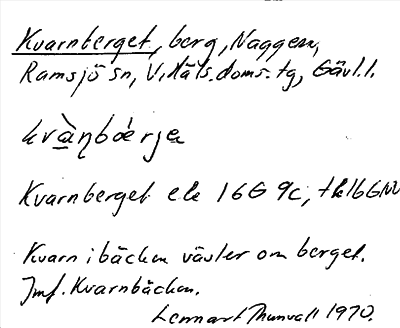 Kvarnberget, berg, Naggen,
Ramsjö sn, V. Häls. doms. tg, Gävl. l.
Kvarnberget ek 16G 9c, tk16GNV
Kvarn i bäcken väster om berget.
Jmf. Kvarnbäcken.
Lennart Thunvall 1970.